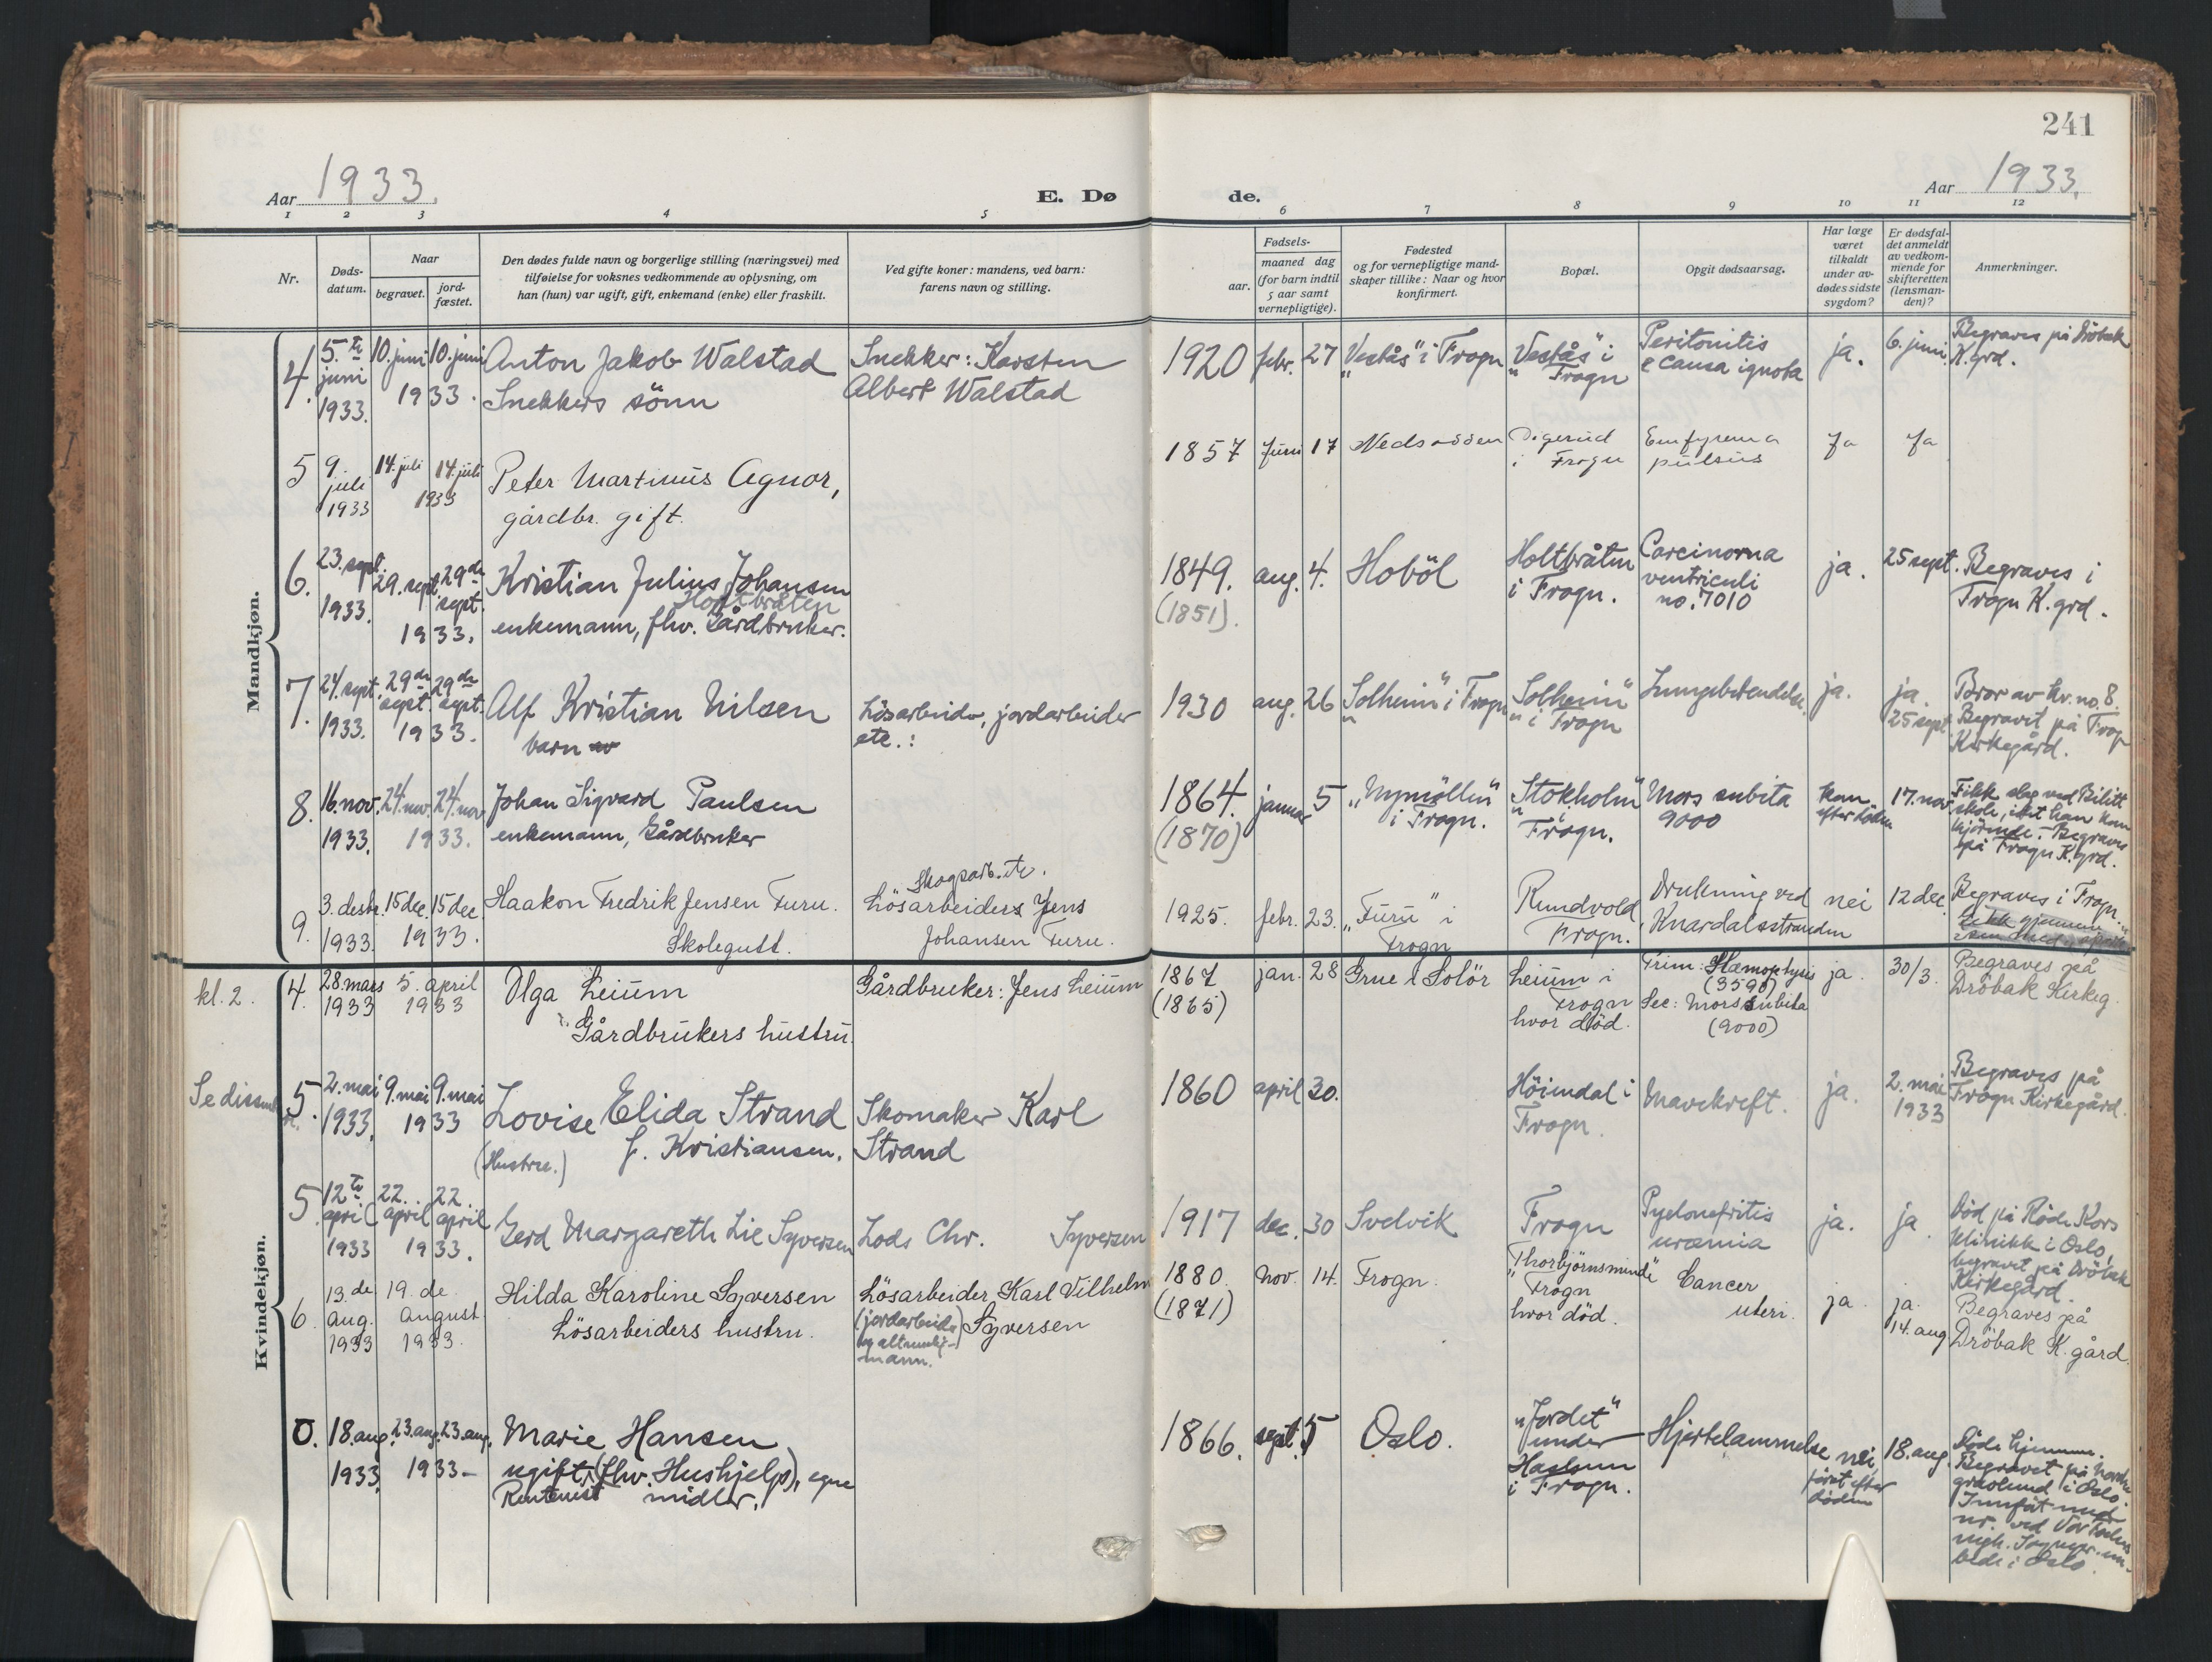 241
Aar 1933.
E. Dø
de.
Aar 1933.
1 2 3 4 5 6 7 8 9 10 11 12
Nr.
Døds-
datum.
Naar
begravet.
jord-
fæstet.
Den dødes fulde navn og borgerlige stilling (næringsvei) med
tilføielse for voksnes vedkommende av oplysning, om
han (hun) var ugift, gift, enkemand (enke) eller fraskilt.
Ved gifte koner: mandens, ved barn:
farens navn og stilling.
Fødsels-
aar.
maaned dag
(for barn indtil
5 aar samt
vernepligtige).
Fødested
og for vernepligtige mand-
skaper tillike: Naar og hvor
konfirmert.
Bopæl.
Opgit dødsaarsag.
Har læge
været
tilkaldt
under av-
dødes sidste
sygdom?
Er dødsfal-
det anmeldt
av vedkom-
mende for
skifteretten
(lensman-
den)?
Anmerkninger.
Mandkjøn.
4.
5.te
juni
1933.
10. juni 10. juni
1933.
Anton Jakob Walstad
Snekkers sönn
Snekker: Karsten
Albert Walstad
1920 febr. 27
"Vestås" i Frogn
"Vestås" i
Frogn
Peritonitis
e causa ignota
ja.
6. juni
Begraves på Dröbak
K.grd.
5
9.
juli
1933
14. juli 14. juli
1933
Peter Martinus Agnor,
gårdbr. gift.
1857 Juni 17
Nedsodden
Digerud
i Frogn
Emfysema
pulsus
Ja
Ja
6.
23. sept.
1933.
29. sept. 29de
sept.
1933.
Kristian Julius Johansen
Holtbråten
enkemann, fhv. Gårdbruker.
1849. aug. 4.
(1851).
Hoböl
Holtbråten
i Frogn.
Carcinoma
ventriculi
no. 7010
ja.
25 sept.
Begraves i
Frogn K.grd.
7.
24. sept.
1933.
29de 29de
sept. sept.
1933.
Alf Kristian Nilsen
barn av
Lösarbeider, jordarbeider
etc.:
1930 aug. 26
"Solheim" i Frogn
"Solheim"
i Frogn
Lungebetendelse.
ja.
ja.
25 sept.
Bror av kv. no. 8.
Begravet på Frogn
Kirkegård.
8.
16. nov.
1933.
24. nov. 24. nov
1933.
Johan Sigvard Paulsen
enkemann, Gårdbruker
1864. januar 5
(1870)
"Nymöllen"
i Frogn.
"Stokholm"
Frogn.
Mors subita
9000
kun
efter döden
17. nov.
Fikk slag ved Bilitt
skole, idet han kom
kjörende. Begraves
på Frogn K.grd.
9.
3. desbr.
1933.
15 dec. 15 dec.
1933.
Haakon Fredrik Jensen Furu.
Skolegutt.
Skogsarb. etc.
Lösarbeiders Jens
Johansen Furu.
1925. febr. 23.
"Furu" i
Frogn
Rundvold
Frogn.
Drukning ved
Knardalsstranden
nei
12 dec.
Begraves i Frogn.
Gikk gjennem
Kvindekjøn.
kl. 2.
4.
28. mars
1933
5. april
1933
Olga Leium
Gårdbrukers hustru.
Gårdbruker: Jens Leium
1867 jan. 28
(1865)
Grue i Solör
Leium i
Frogn
hvor död.
Prim: Hæmoptysis
(3590)
Sec: Mors subita
(9000)
ja
30/3.
Begraves på
Dröbak Kirkeg.
Se dissent
5.
2. mai
1933.
9. mai 9. mai
1933
Lovise Elida Strand
f. Kristiansen.
(Hustru.)
Skomaker Karl
Strand
1860 april 30.
Höimdal i
Frogn.
Mavekreft.
ja.
2. mai
1933
Begraves på
Frogn Kirkegård.
5.
12te
april
1933
22. 22.
april april
1933.
Gerd Margareth Lie Syversen
Lods Chr. Syversen
1917 dec. 30
Svelvik
Frogn
Pyelonefritis
uræmia
ja.
ja.
Död på Röde Kors
Klinikk i Oslo,
begravet på Dröbak
Kirkegård.
6.
13. de
aug.
1933
19. de
august
1933.
Hilda Karoline Syversen
Lösarbeiders hustru.
Lösarbeider Karl Vilhelm
(jordarbeider Syversen
og altmulig-
mann.)
1880. nov. 14.
(1871)
Frogn.
"Thorbjörnsminde"
Frogn
hvor död.
Cancer
uteri.
ja
ja.
14. aug
Begraves på
Dröbak K.gård.
0.
18. aug.
1933.
23. aug. 23. aug.
1933 –
Marie Hansen
ugift, (fhv. Hushjelp), egne
Rentenist midler.
1866. sept. 5
Oslo.
"Jordet"
under
Haslum
i Frogn.
Hjertelammelse
nei
först efter
döden
18. aug.
Döde hjemme.
Begravet på Nordre
gravlund i Oslo.
Innfört med
nr. ved Vor Frelsers
Oslo.